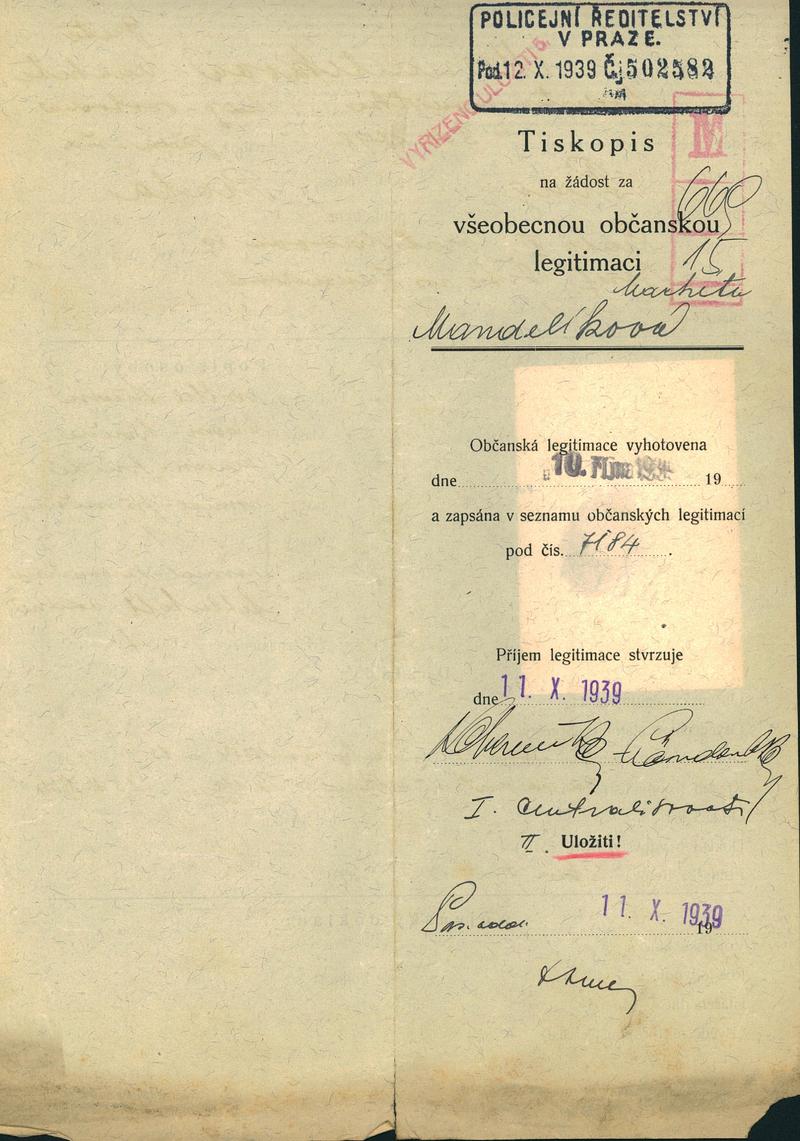 POLICEJNÍ ŘEDITELSTVÍ
V PRAZE.
Pod. 12. X. 1939 Čj 502582
VYŘÍZENO ULOŽITI
M
Tiskopis
na žádost za
660
všeobecnou občanskou
15
legitimaci
Markéta
Mandelíková
Občanská legitimace vyhotovena
dne 10. října 19
a zapsána v seznamu občanských legitimací
pod čís. 7184.
Příjem legitimace stvrzuje
dne 11. X. 1939
I. Centralisovati
II. Uložiti!
11. X. 1939
19